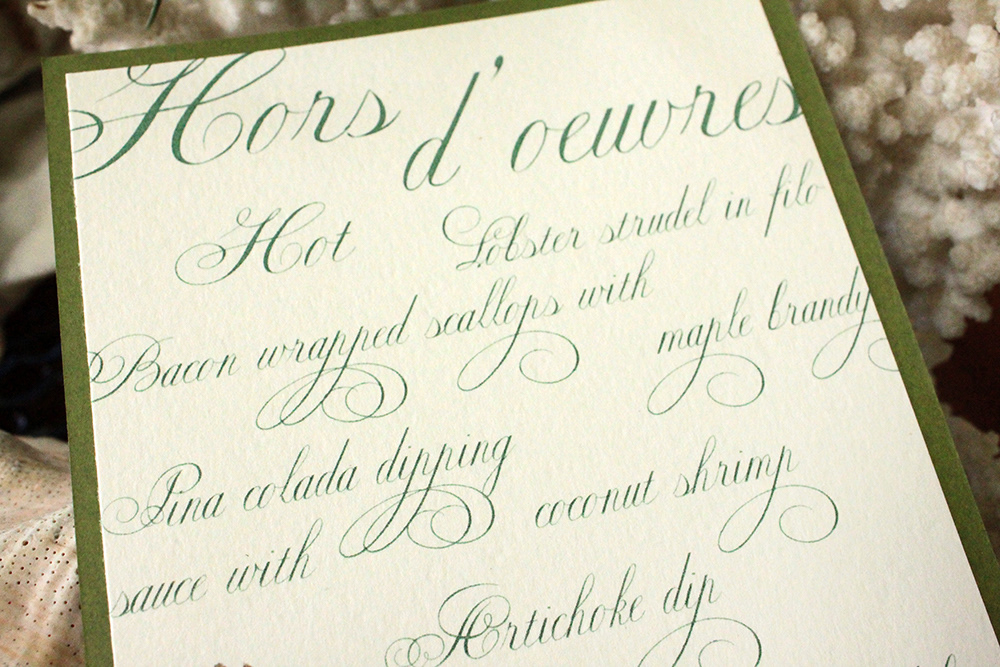 Hors d'oeuvres
Hot Lobster strudel in filo
Bacon wrapped scallops with maple brandy
Pina colada dipping
sauce with coconut shrimp
Artichoke dip